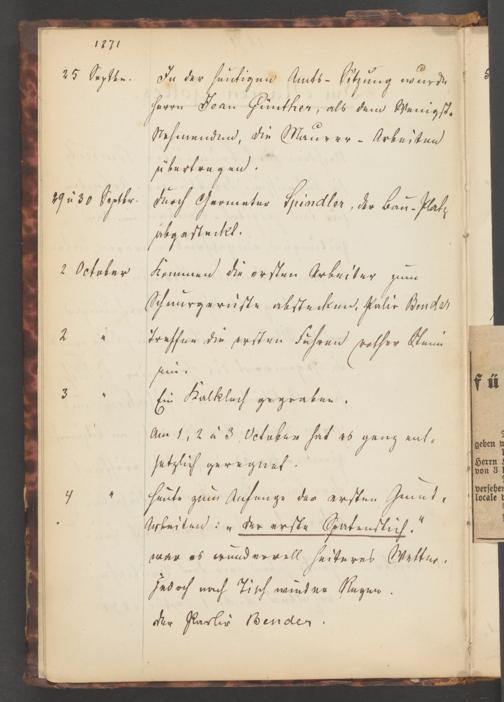 1871
25 Septbr. In der heutigen Amts-Sitzung wurde
Herrn Joan Günther, als dem Wenigst-
Nehmenden, die Maurer-Arbeiten
übertragen.
29 u 30 Septbr. Durch Geometer Spindler, der Bau-Platz
abgesteckt.
2 October Kommen die ersten Arbeiter zum
Schnurgerüste abstecken, Palir Bender
2 " treffen die ersten Fuhren rother Stein
ein.
3 " Ein Kalkloch gegraben.
Am 1, 2 u 3 October hat es ganz ent-
setzlich geregnet.
4 " Heute zum Anfange der ersten Grund-
Arbeiten: „der erste Spatenstich."
war es wundervoll heiteres Wetter.
Jedoch nach Tisch wieder Regen.
der Parlir Bender.
fü
geben
Herrn
von 3
versehe
locale